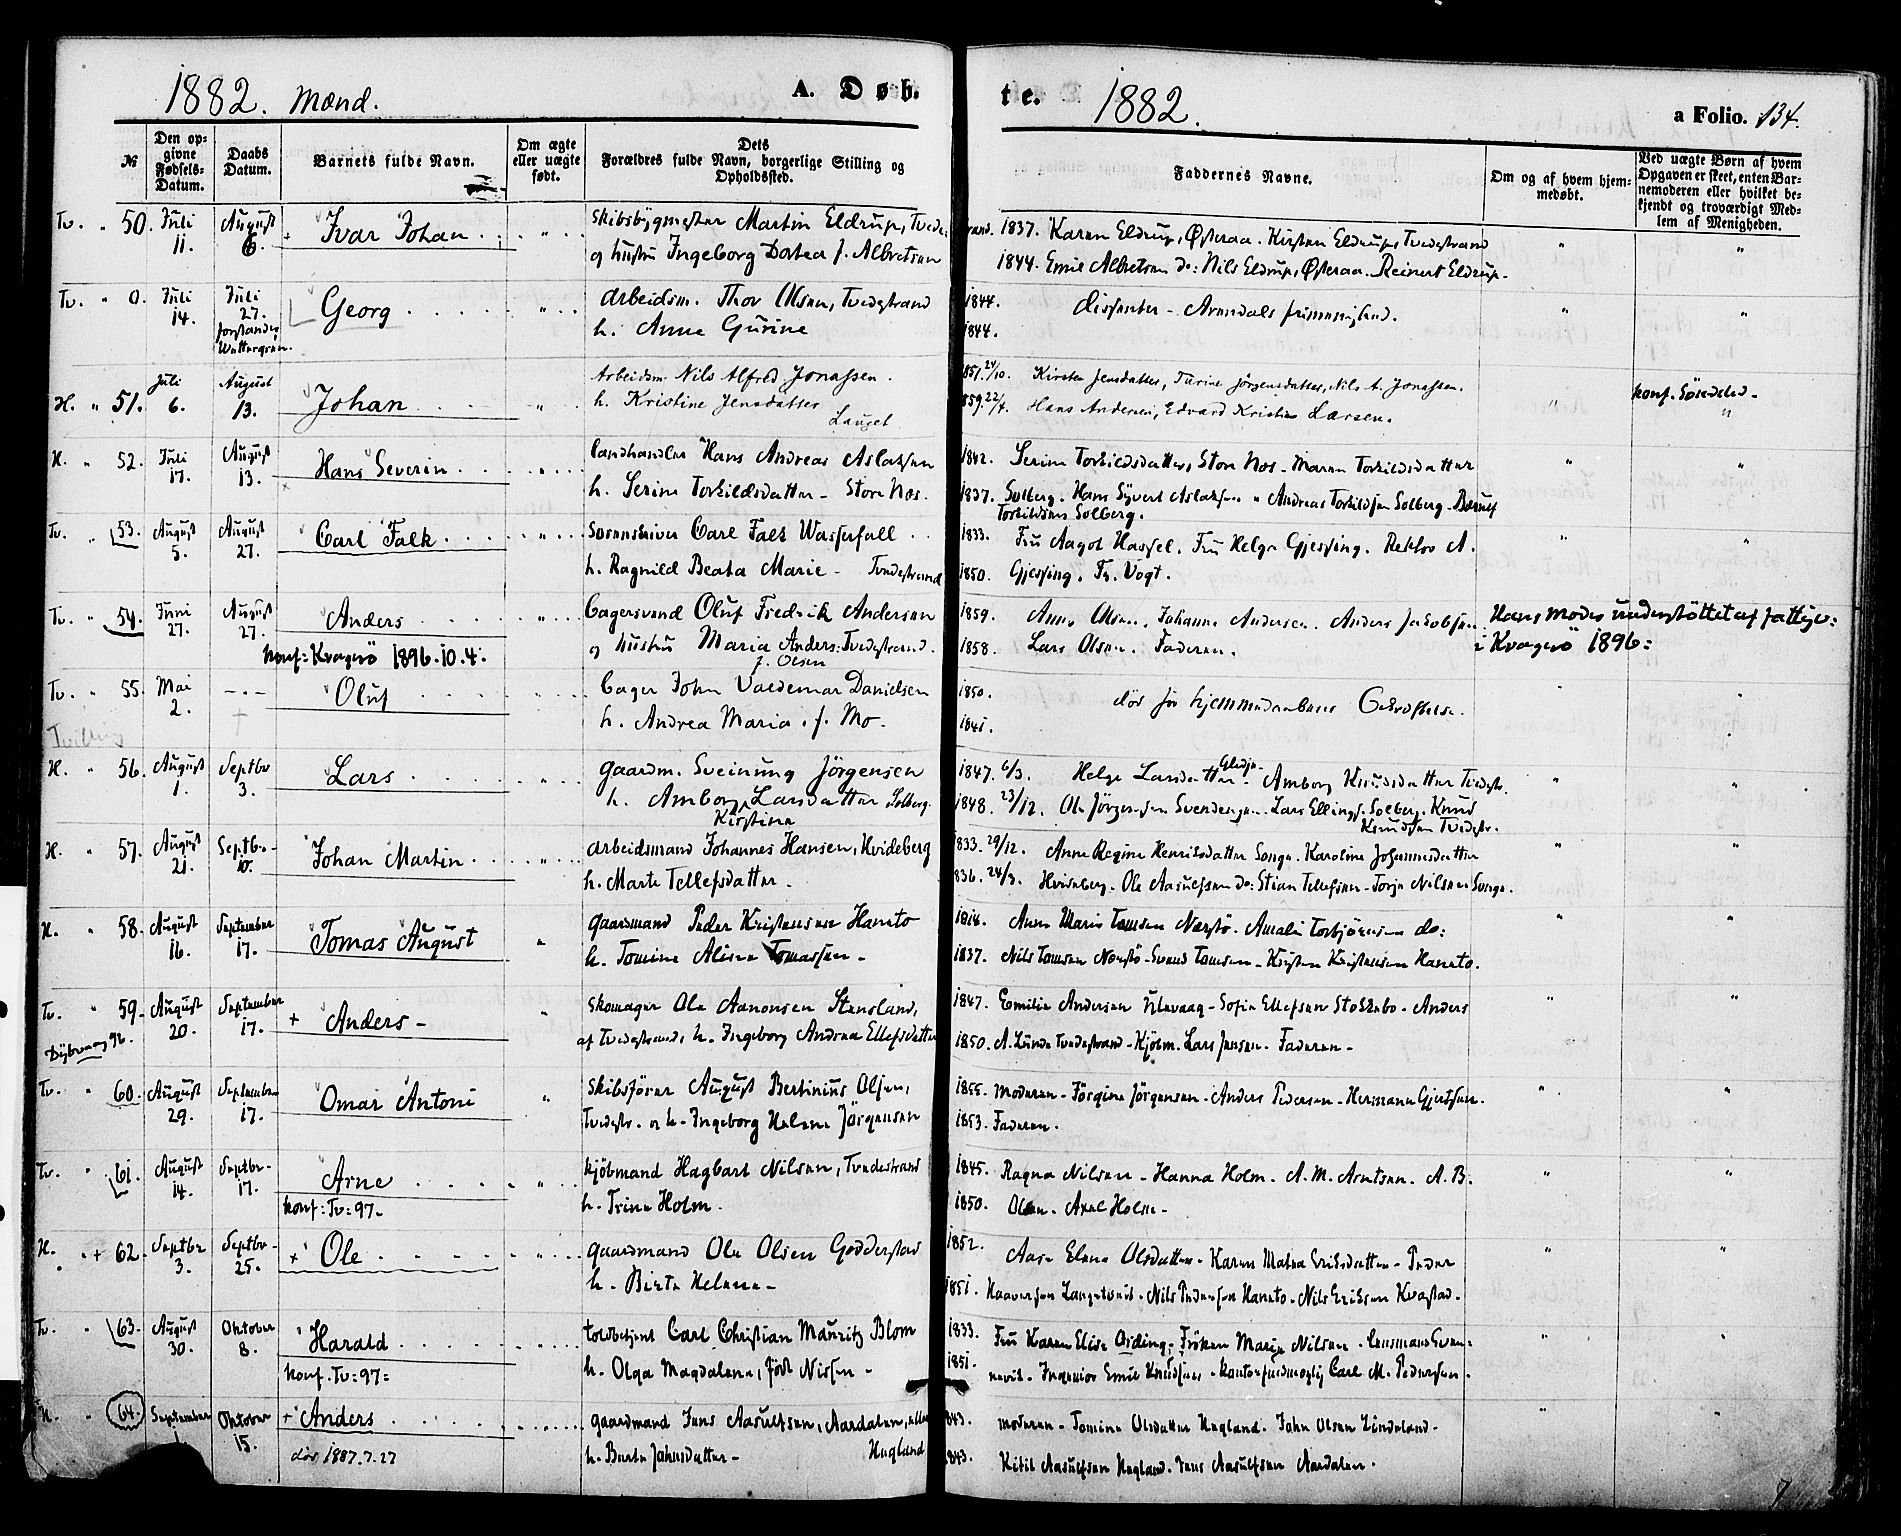 1882. Mænd.
A. Døb.
te.
1882.
a Folio. 134.
№
Den opgivne Fødsels-Datum.
Daabs Datum.
Barnets fulde Navn.
Om ægte eller uægte født.
Dets Forældres fulde Navn, borgerlige Stilling og Opholdssted.
Faddernes Navne.
Om og af hvem hjemmedøbt.
Ved uægte Børn af hvem Opgaven er skeet, enten Barnemoderen eller hvilket bekjendt og troværdigt Medlem af Menigheden.
Tv. " 50. Juli 11. August 6. Ivar Johan " Skibsbygmester Martin Eldrup, Tvede-
og hustru Ingeborg Dortea f. Albretsen
strand. 1837. Karen Eldrup, Østeraa. Kirsten Eldrup, Tvedestrand
1844. Emil Albretsen do: Nils Eldrup, Østeraa. Reinert Eldrup.
Tv. " 0. Juli 14. Juli 27. forstander Wettergren. Georg " Arbeidsm. Thov Olsen, Tvedestrand
h. Anne Gurine
1844. dissenter - Arendals frimenighed.
1844.
H. " 51. Juli 6. August 13. Johan " Arbeidsm. Nils Alfred Jonassen.
h. Kristine Jensdatter
Lauget
1857. 24/10. Kirsten Jensdatter, Turine Jørgensdatter, Nils A. Jonassen.
1859. 22/4. Hans Andersen, Edvard Kristian Larsen.
konf. Söndeled -
H. " 52. Juli 17. August 13. Hans Severin " Landhandler Hans Andreas Aslaksen
h. Serine Torkildsdatter - Store Næs.
1842. Serine Torkildsdatter, Store Næs - Maren Torkildsdatter
1837. Solberg. Hans Syvert Aslaksen " Andreas Torkildsen Solberg -
Torkildsen Solberg.
Tv. " 53. August 5. August 27. Carl Falk " Sorenskriver Carl Falk Wasserfall
h. Ragnild Beata Marie - Tvedestrand
1833. Fru Aagot Hassel. Fru Helga Gjessing. Rektor A.
1850. Gjessing. Fr. Vogt.
Tv. " 54. Juni 27. August 27. Anders " Bagersvend Oluf Fredrik Andersen
og hustru Maria Anders: Tvedestrand.
f. Olsen
konf: Kragerö 1896.10.4.
1859. Anne Olsen. Johanne Andersen. Anders Jakobsen
1858. Lars Olsen. Faderen.
Hans moder understöttet af fattigv:
i Kragerö 1896:
Tv. " 55. Mai 2. - " - Oluf Bager John Valdemar Danielsen
h. Andrea Maria, f. Mo -
1850. död før hjemmedaabens Bekræftelse.
1841.
Tvilling
H. " 56. August 1. Septbr 3. Lars " Gaardm. Sveinung Jörgensen
h. Amborg Larsdatter Solberg.
Kirstine
1847. 6/3. Helge Larsdatter Gliddje- Amborg Knudsdatter Tvedestr.
1848. 23/12. Ole Jörgensen - Lars Ellingsen Solberg. Knud
Knudsen Tvedestr.
H. " 57. August 21. Septbr- 10. Johan Martin " Arbeidsmand Johannes Hansen, Hvideberg
h. Marte Tellefsdatter.
1833. 29/12. Anne Regine Henriksdatter Songe. Karoline Johannesdatter
1836. 24/3. Hvideberg. Ole Aasulfsen do: Stian Tellefsen - Torje Nilsen Songe.
H. " 58. August 16. September 17. Tomas August " Gaardmand Peder Kristensen Hanto
h. Tomine Alise Tomassen -
Anne Marie Tomsen Næstö. Amalie Torbjörnsen do:
1837. Nils Tomsen Næstö - Svend Tomsen - Kristen Kristensen Hanto.
Tv. " 59. August 20. September 17. + Anders - " Skomager Ole Aanonsen Stensland,
af Tvedestrand, h. Ingeborg Andrea Ellefsdatter
Dybvaag 96.
1847. Emilie Andersen - Sofie Ellefsen Stokkebo - Anders
1850. A. Lunde Tvedestrand - Kjölm. Lars Jensen. Faderen -
Tv. " 60. August 29. September 17. Omar Antoni " Skibsförer August Bertinius Olsen,
Tvedestr. og h. Ingeborg Helene Jörgensen
1855. Moderen - Jörgine Jörgensen - Anders Pedersen - Hermann Gjertsen.
1853. Faderen.
Tv. " 61. August 14. Septbr- 17. Arne " Kjöbmand Hagbart Nilsen, Tvedestrand
h. Trine Holm.
konf: Tv: 97-
1845. Ragna Nilsen - Hanna Holm. A. M. Arntsen. A. B.
1850. Olsen. Axel Holm -
H. " + 62. Septbr 3. Septbr- 25. + Ole " Gaardmand Ole Olsen Godderstad
h. Birte Helene -
1852. Aase Elene Olsdatter - Karen Matea Eriksdatter - Peder
1851. Haaversen Langetveit - Nils Pedersen Hanto - Nils Eriksen Kvastad -
Tv. " 63. August 30. Oktober 8. Harald " Toldbetjent Carl Christian Mauritz Blom
h. Olga Magdalene, född Nissen -
konf. Tv: 97=
1833. Fru Karen Elise Ording. Fröken Marie Nilsen -
1851. - Ingeniör Emil Knudsen - Kontorfuldmægtig Carl M. Pedersen -
H. " 64. September 1 Oktober 15. + Anders Gaardmand Jens Aasulfsen, Aardalen, eller
h. Berte Johnsdatter - Hegland
död 1887.7.27
1843. Moderen - Tomine Olsdatter Hegland. John Olsen Lindeland -
1843. Kitil Aasulfsen Hegland. Jens Aasulfsen Aardalen.